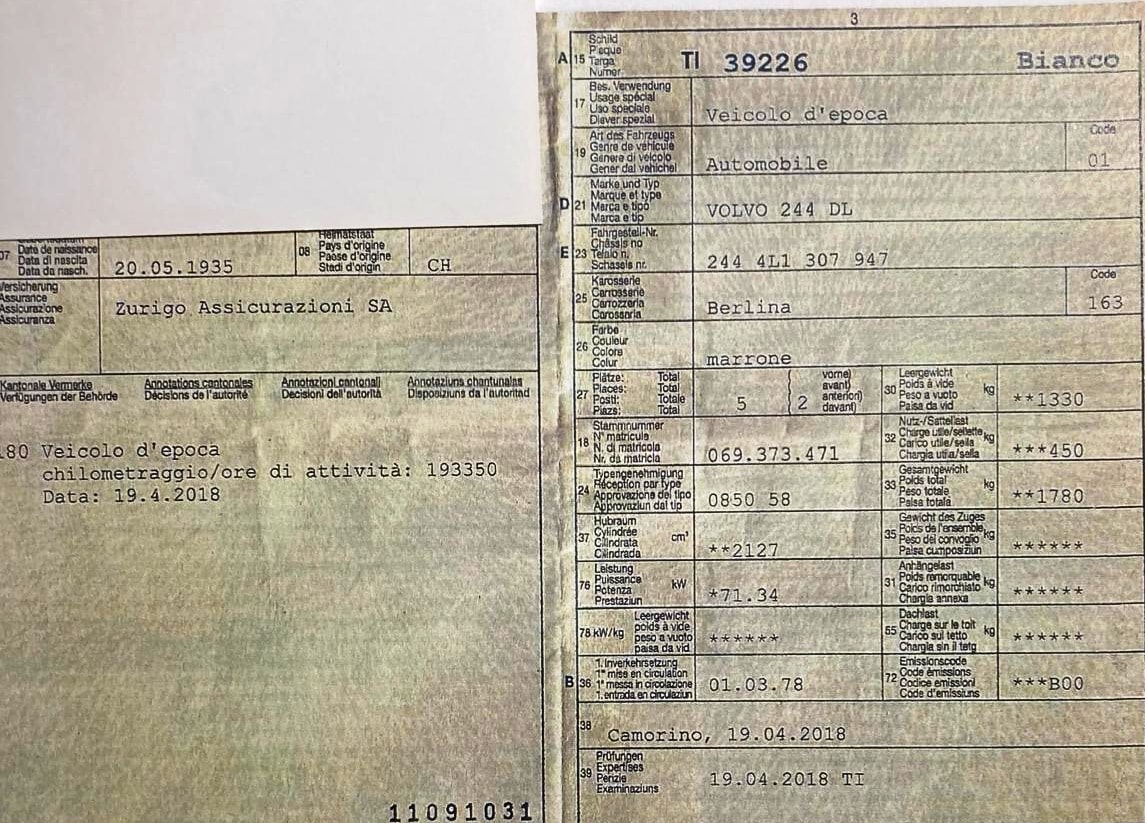 07 Data de naissance
Data di nascita
Data da nasch.
20.05.1935
08 Heimatstaat
Pays d'origine
Paese d'origine
Stadi d'origin
CH
Versicherung
Assurance
Assicurazione
Assicuranza
Zurigo Assicurazioni SA
Kantonale Vermerke
Verfügungen der Behörde
Annotations cantonales
Décisions de l'autorité
Annotazioni cantonali
Decisioni dell'autorità
Annotaziuns chantunalas
Disposiziuns da l'autoritad
180 Veicolo d'epoca
chilometraggio/ore di attività: 193350
Data: 19.4.2018
11091031
3
A 15 Schild
Plaque
Targa
Numer
TI 39226 Bianco
17 Bes. Verwendung
Usage spécial
Uso speciale
Diever spezial
Veicolo d'epoca
19 Art des Fahrzeugs
Genre de véhicule
Genere di veicolo
Gener dal vehichel
Automobile
Code
01
D 21 Marke und Typ
Marque et type
Marca e tipo
Marca e tip
VOLVO 244 DL
E 23 Fahrgestell-Nr.
Châssis no
Telaio n.
Schassis nr.
244 4L1 307 947
25 Karosserie
Carrosserie
Carrozzeria
Carossaria
Berlina
Code
163
26 Farbe
Couleur
Colore
Colur
marrone
27 Plätze: Total
Places: Total
Posti: Totale
Plazs: Total
5
vorne)
avant)
anteriori)
davant)
2
30 Leergewicht
Poids à vide
Peso a vuoto
Paisa da vid
kg
**1330
18 Stammnummer
N° matricule
N. di matricola
Nr. da matricla
069.373.471
32 Nutz-/Sattellast
Charge utile/sellette
Carico utile/sella
Chargia utila/sella
kg
***450
24 Typengenehmigung
Réception par type
Approvazione del tipo
Approvaziun dal tip
0850 58
33 Gesamtgewicht
Poids total
Peso totale
Paisa totala
kg
**1780
37 Hubraum
Cylindrée
Cilindrata
Cilindrada
cm³
**2127
35 Gewicht des Zuges
Poids de l'ensemble
Peso del convoglio
Paisa cumposiziun
kg
******
76 Leistung
Puissance
Potenza
Prestaziun
kW
*71.34
31 Anhängelast
Poids remorquable
Carico rimorchiato
Chargia annexa
kg
******
78 kW/kg Leergewicht
poids à vide
peso a vuoto
paisa da vid
******
55 Dachlast
Charge sur le toit
Carico sul tetto
Chargia sin il tetg
kg
******
B 36 1. Inverkehrsetzung
1re mise en circulation
1a messa in circolazione
1. entrada en circulaziun
01.03.78
72 Emissionscode
Code émissions
Codice emissioni
Code d'emissiuns
***B00
38
Camorino, 19.04.2018
39 Prüfungen
Expertises
Perizie
Examinaziuns
19.04.2018 TI